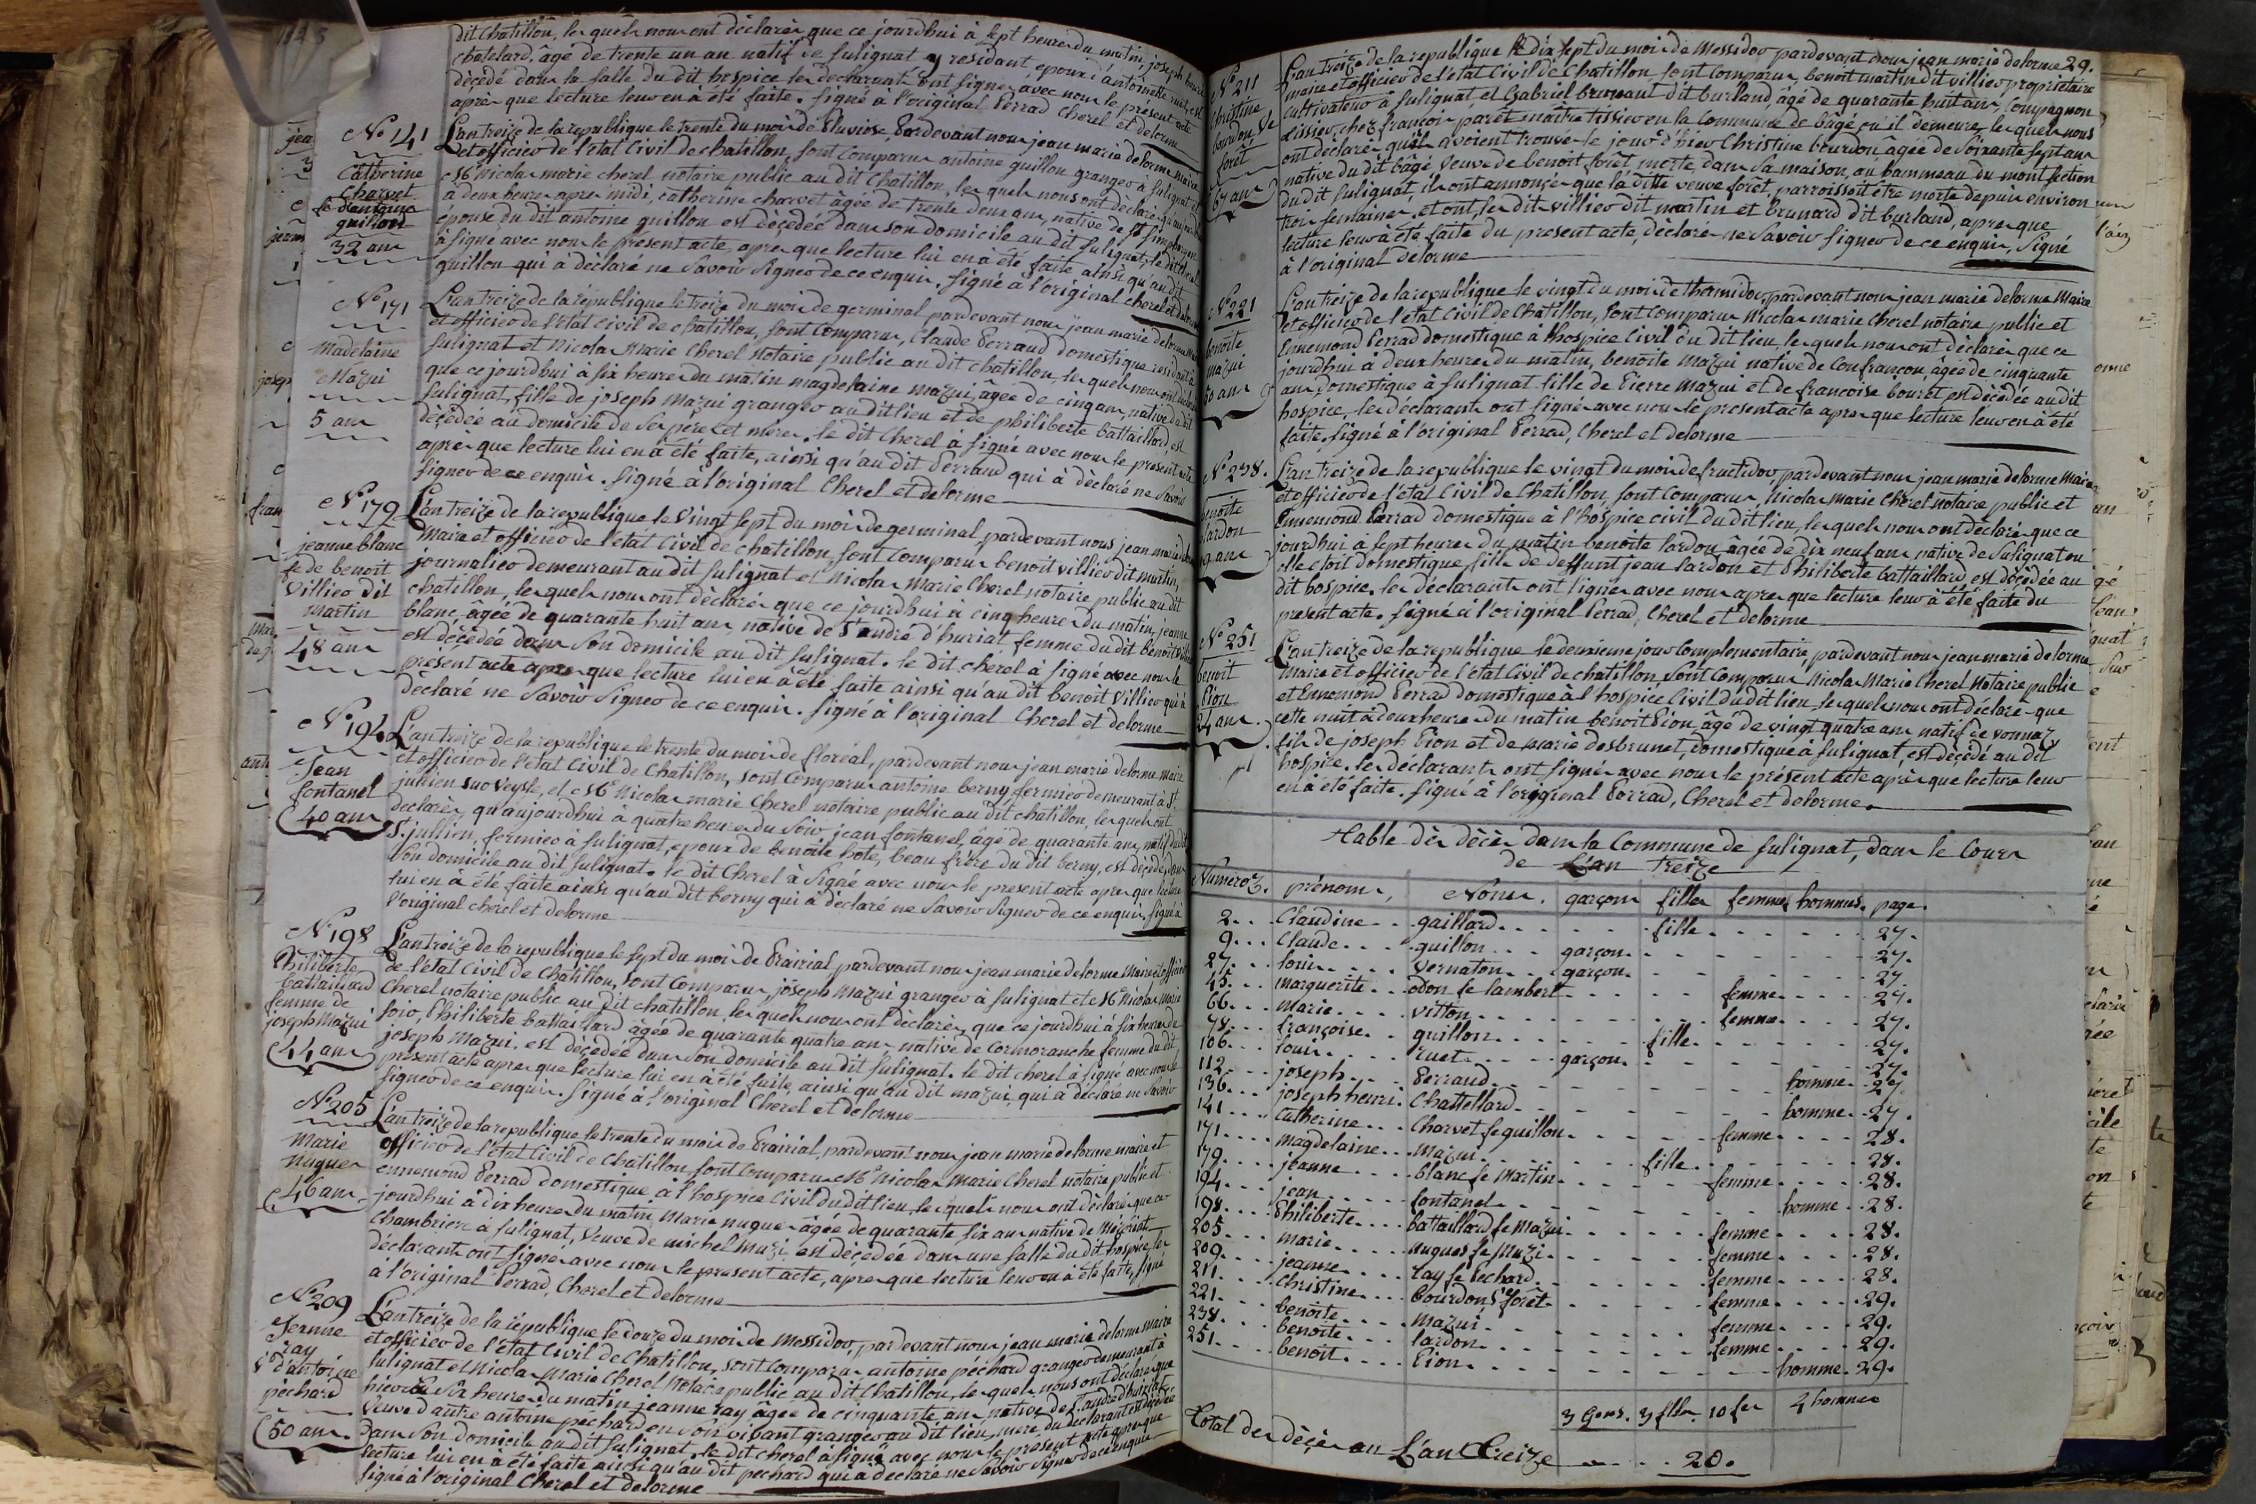 dit Chatillon, lesquels nous ont déclarés que ce jourdhui à sept heures du matin, joseph henri
chatelard, âgé de trente un an natif de Sulignat y residant, epoux d'antoinette ruet, est
décédé dans la salle du dit hospice les declarants ont signés avec nous le présent acte
après que lecture leur en à été faite. signé à l'original Perrad Cherel et delorme
N° 141
Catherine
Charvet
fe d'antoine
guillon
32 ans
L'an treize de la republique le trente du mois de Pluviose, Pardevant nous jean marie delorme maire
et officier de l'état Civil de chatillon, sont Comparus antoine guillon granger à Sulignat et
Mr Nicolas marie cherel notaire public au dit Chatillon, les quels nous ont déclarés qu'aujourdhui
à deux heures apres midi, catherine charvet agée de trente deux ans, native de St simphorien
epouse du dit antoine guillon est décédée dans son domicile au dit Sulignat, le dit Cherel
à signé avec nous le présent acte, apres que lecture lui en a été faite ainsi, qu'au dit
guillon qui à déclaré ne Savoir Signer de ce enquis. Signé à l'original cherel et delorme
N° 171
Madelaine
Mazui
5 ans
L'an treize de la république le treize du mois de germinal pardevant nous jean marie delorme Maire
et officier de l'état Civil de chatillon, sont Comparus, Claude Perraud domestique residant à
Sulignat et Nicolas Marie Cherel Notaire public au dit chatillon, les quels nous ont déclarés
que ce jourdhui à six heures du matin magdelaine mazui, âgée de cinq ans, native du dit
Sulignat, fille de joseph Mazui granger au dit lieu et de philiberte battaillard, est
décédée au domicile de Ses père et mère. le dit Cherel à signé avec nous le present acte
après que lecture lui en à été faite, ainsi qu'au dit Perraud qui à déclaré ne Savoir
signer de ce enquis. Signé à l'original Cherel et delorme
N° 179
jeanne blanc
fe de benoit
Villier dit
martin
48 ans
L'an treize de la republique le Vingt Sept du mois de germinal, pardevant nous jean marie delorme
Maire et officier de l'état Civil de chatillon, sont Comparus benoit villier dit martin
journalier demeurant au dit sulignat et Nicolas Marie Cherel notaire public au dit
chatillon, les quels nous ont déclarés que ce jourdhui à cinq heures du matin, jeanne
blanc, âgée de quarante huit ans, native de St andré d'huriat femme du dit benoit villier
est décédée dans Son domicile au dit Sulignat. le dit chérel à signé avec nous le
présent acte apres que lecture lui en à été faite ainsi qu'au dit benoit Villier qui à
déclaré ne Savoir Signer de ce enquis. signé à l'original Cherel et delorme
N° 194
Jean
fontanel
40 ans
L'an treize de la republique le trente du mois de floréal, pardevant nous jean marie delorme Maire
et officier de l'état Civil de Chatillon, sont Comparus antoine berny fermier demeurant à St
jullien sur Veyle, et Mr Nicolas marie Cherel notaire public au dit chatillon, les quels ont
declarés, qu'aujourdhui à quatre heures du Soir jean fontanel, âgé de quarante ans, natif du dit
St jullien, fermier à Sulignat, epoux de benoite hote, beau frère du dit berny, est décédé dans
Son domicile au dit Sulignat. le dit Cherel à Signé avec nous le present acte apres que lecture
lui en à été faite ainsi qu'au dit berny qui à déclaré ne Savoir Signer de ce enquis, signé à
l'original cherel et delorme
N° 198
Philiberte
battaillard
femme de
joseph Mazui
44 ans
L'an treize de la republique le sept du mois de Prairial pardevant nous jean marie delorme Maire et officier
de l'état Civil de Chatillon, sont Comparus joseph Mazui granger à Sulignat et Mr Nicolas Marie
Cherel notaire public au dit chatillon, les quels nous ont déclarés, que ce jourdhui à six heures du
soir, Philiberte battaillard agée de quarante quatre ans native de Cormoranche femme du dit
joseph Mazui. est décédée dans son domicile au dit Sulignat. le dit cherel à signé avec nous le
présent acte apres que lecture lui en à été faite, ainsi qu'au dit mazui, qui à déclaré ne Savoir
signer de ce enquis. signé à l'original Cherel et delorme
N° 205
Marie
Nugues
46 ans
L'an treize de la republique le trente du mois de Prairial, pardevant nous jean marie delorme maire et
officier de l'état Civil de Chatillon, sont Comparus Mr Nicolas Marie Cherel notaire public et
ennemond Perrad domestique à l'hospice Civil du dit lieu, les quels nous ont déclarés que ce
jourdhui à dix heures du matin, Marie nugues agée de quarante six ans native de Mezeriat
Chambriere à Sulignat, Veuve de michel Muzi est décédée dans une salle du dit hospice les
déclarants ont signés avec nous le present acte, apres que lecture leur en à été faite, signé
à l'original Perrad, Cherel et delorme
N° 209
Jeanne
ray
Ve d'antoine
péchard
50 ans
L'an treize de la république le douze du mois de Messidor, pardevant nous jean marie delorme maire
et officier de l'état Civil de Chatillon, sont Comparus antoine péchard granger demeurant à
Sulignat et Nicolas Marie Cherel Notaire public au dit Chatillon, les quels nous ont déclarés que
hier à Six heures du matin jeanne ray âgée de cinquante ans native de St andré d'huriat,
Veuve d'autre antoine péchard en son vivant granger au dit lieu, mere du declarant est décédée
dans Son domicile au dit Sulignat. le dit cherel à signé avec nous le present acte apres que
lecture lui en à été faite ainsi qu'au dit pechard qui à déclaré ne Savoir Signer de ce enquis
signé à l'original Cherel et delorme
29.
N° 211
Christine
bourdon Ve
forêt
67 ans
L'an treize de la republique le dix sept du mois de Messidor pardevant nous jean marie delorme
maire et officier de l'état Civil de Chatillon sont Comparus, benoit martin dit villier proprietaire
cultivateur à Sulignat, et Gabriel brunard dit burland, âgé de quarante huit ans, Compagnon
tissier, chez françois parêt maître tissier en la Commune de bâgé ou il demeure, les quels nous
ont déclarés qu'il avoient trouvé le jour d'hier Christine bourdon âgée de Soixante sept ans
native du dit bâgé Veuve de benoit forêt morte dans Sa maison, au hammeau du mont section
du dit Sulignat, ils ont annonçés que la ditte veuve forêt, parroissoit être morte depuis environ
trois semaines, et ont les dit villier dit martin et brunard dit burland, apres que
lecture leur à été faite du present acte, déclarés ne Savoir signer de ce enquis, Signé
à l'original delorme
N° 221
benoite
mazui
50 ans
L'an treize de la republique le vingt du mois de thermidor, pardevant nous jean marie delorme Maire
et officier de l'état Civil de Chatillon, sont Comparus Nicolas marie Cherel notaire public et
Ennemond Perrad domestique à l'hospice Civil du dit lieu, les quels nous ont déclarés que ce
jourdhui à deux heures du matin, benoite Mazui native de Confrançon, âgée de cinquante
ans, domestique à Sulignat fille de Pierre Mazui et de françoise bouret est décédée au dit
hospice, les déclarants ont signés avec nous le present acte apres que lecture leur en à été
faite. signé à l'original Perrad, Cherel et delorme
N° 238.
benoite
lardon
19 ans
L'an treize de la republique le vingt du mois de fructidor, pardevant nous jean marie delorme Maire
et officier de l'état Civil de Chatillon, sont Comparus, Nicolas marie Cherel notaire public et
Ennemond Perrad domestique à l'hospice civil du dit lieu, les quels nous ont déclarés que ce
jourdhui à sept heures du matin benoite lardon, âgée de dix neuf ans native de Sulignat ou
elle étoit domestique, fille de deffunt jean lardon et Philiberte battaillard, est décédée au
dit hospice, les déclarants ont signés avec nous apres que lecture leur à été faite du
present acte. signé à l'original Perrad, Cherel et delorme
N° 251
benoit
Pion
24 ans.
L'an treize de la republique le deuxieme jour Complementaire, pardevant nous jean marie delorme
Maire et officier de l'état Civil de chatillon, sont Comparus Nicolas Marie Cherel Notaire public
et Ennemond Perrad domestique à l'hospice Civil du dit lieu, les quels nous ont déclarés que
cette nuit à deux heures du matin benoit Pion, âgé de vingt quatre ans natif de vonnaz
fils de joseph Pion et de marie desbrunet, domestique à Sulignat, est décédé au dit
hospice. les déclarants ont signés avec nous le présent acte après que lecture leur
en à été faite. signé à l'original Perrad, Cherel et delorme.
Table des décès dans la Commune de Sulignat, dans le Cours
de L'an treize
Numéros. prénoms, Noms. garçons filles femmes hommes. page.
2... Claudine.. gaillard... fille... 27.
9... Claude... guillon... garçon... 27.
27... louis... vernaton... garçon... 27.
45... marguerite... odon fe lambert... femme... 27.
66... marie... vitton... femme... 27.
78... françoise.. guillon... fille... 27.
106... louis... ruet... garçon... 27.
112... joseph... Perraud... homme.. 27.
136... joseph henri. Chattellard... homme.. 27.
141... Catherine... Charvet fe guillon... femme... 28.
171... magdelaine... Mazui... fille... 28.
179... jeanne... blanc fe Martin... femme... 28.
194... jean... fontanel... homme.. 28.
198... Philiberte... battaillard fe Mazui... femme... 28.
205... marie... nugues fe Muzi... femme... 28.
209... jeanne... ray fe Pechard... femme... 28.
211... Christine... bourdon Ve forêt... femme... 29.
221... benoite... mazui... femme... 29.
238... benoite... lardon... femme... 29.
251... benoit... Pion... homme. 29.
3 Gons. 3 flles. 10 fes 4 hommes
Total des décès en L'an Treize... 20.